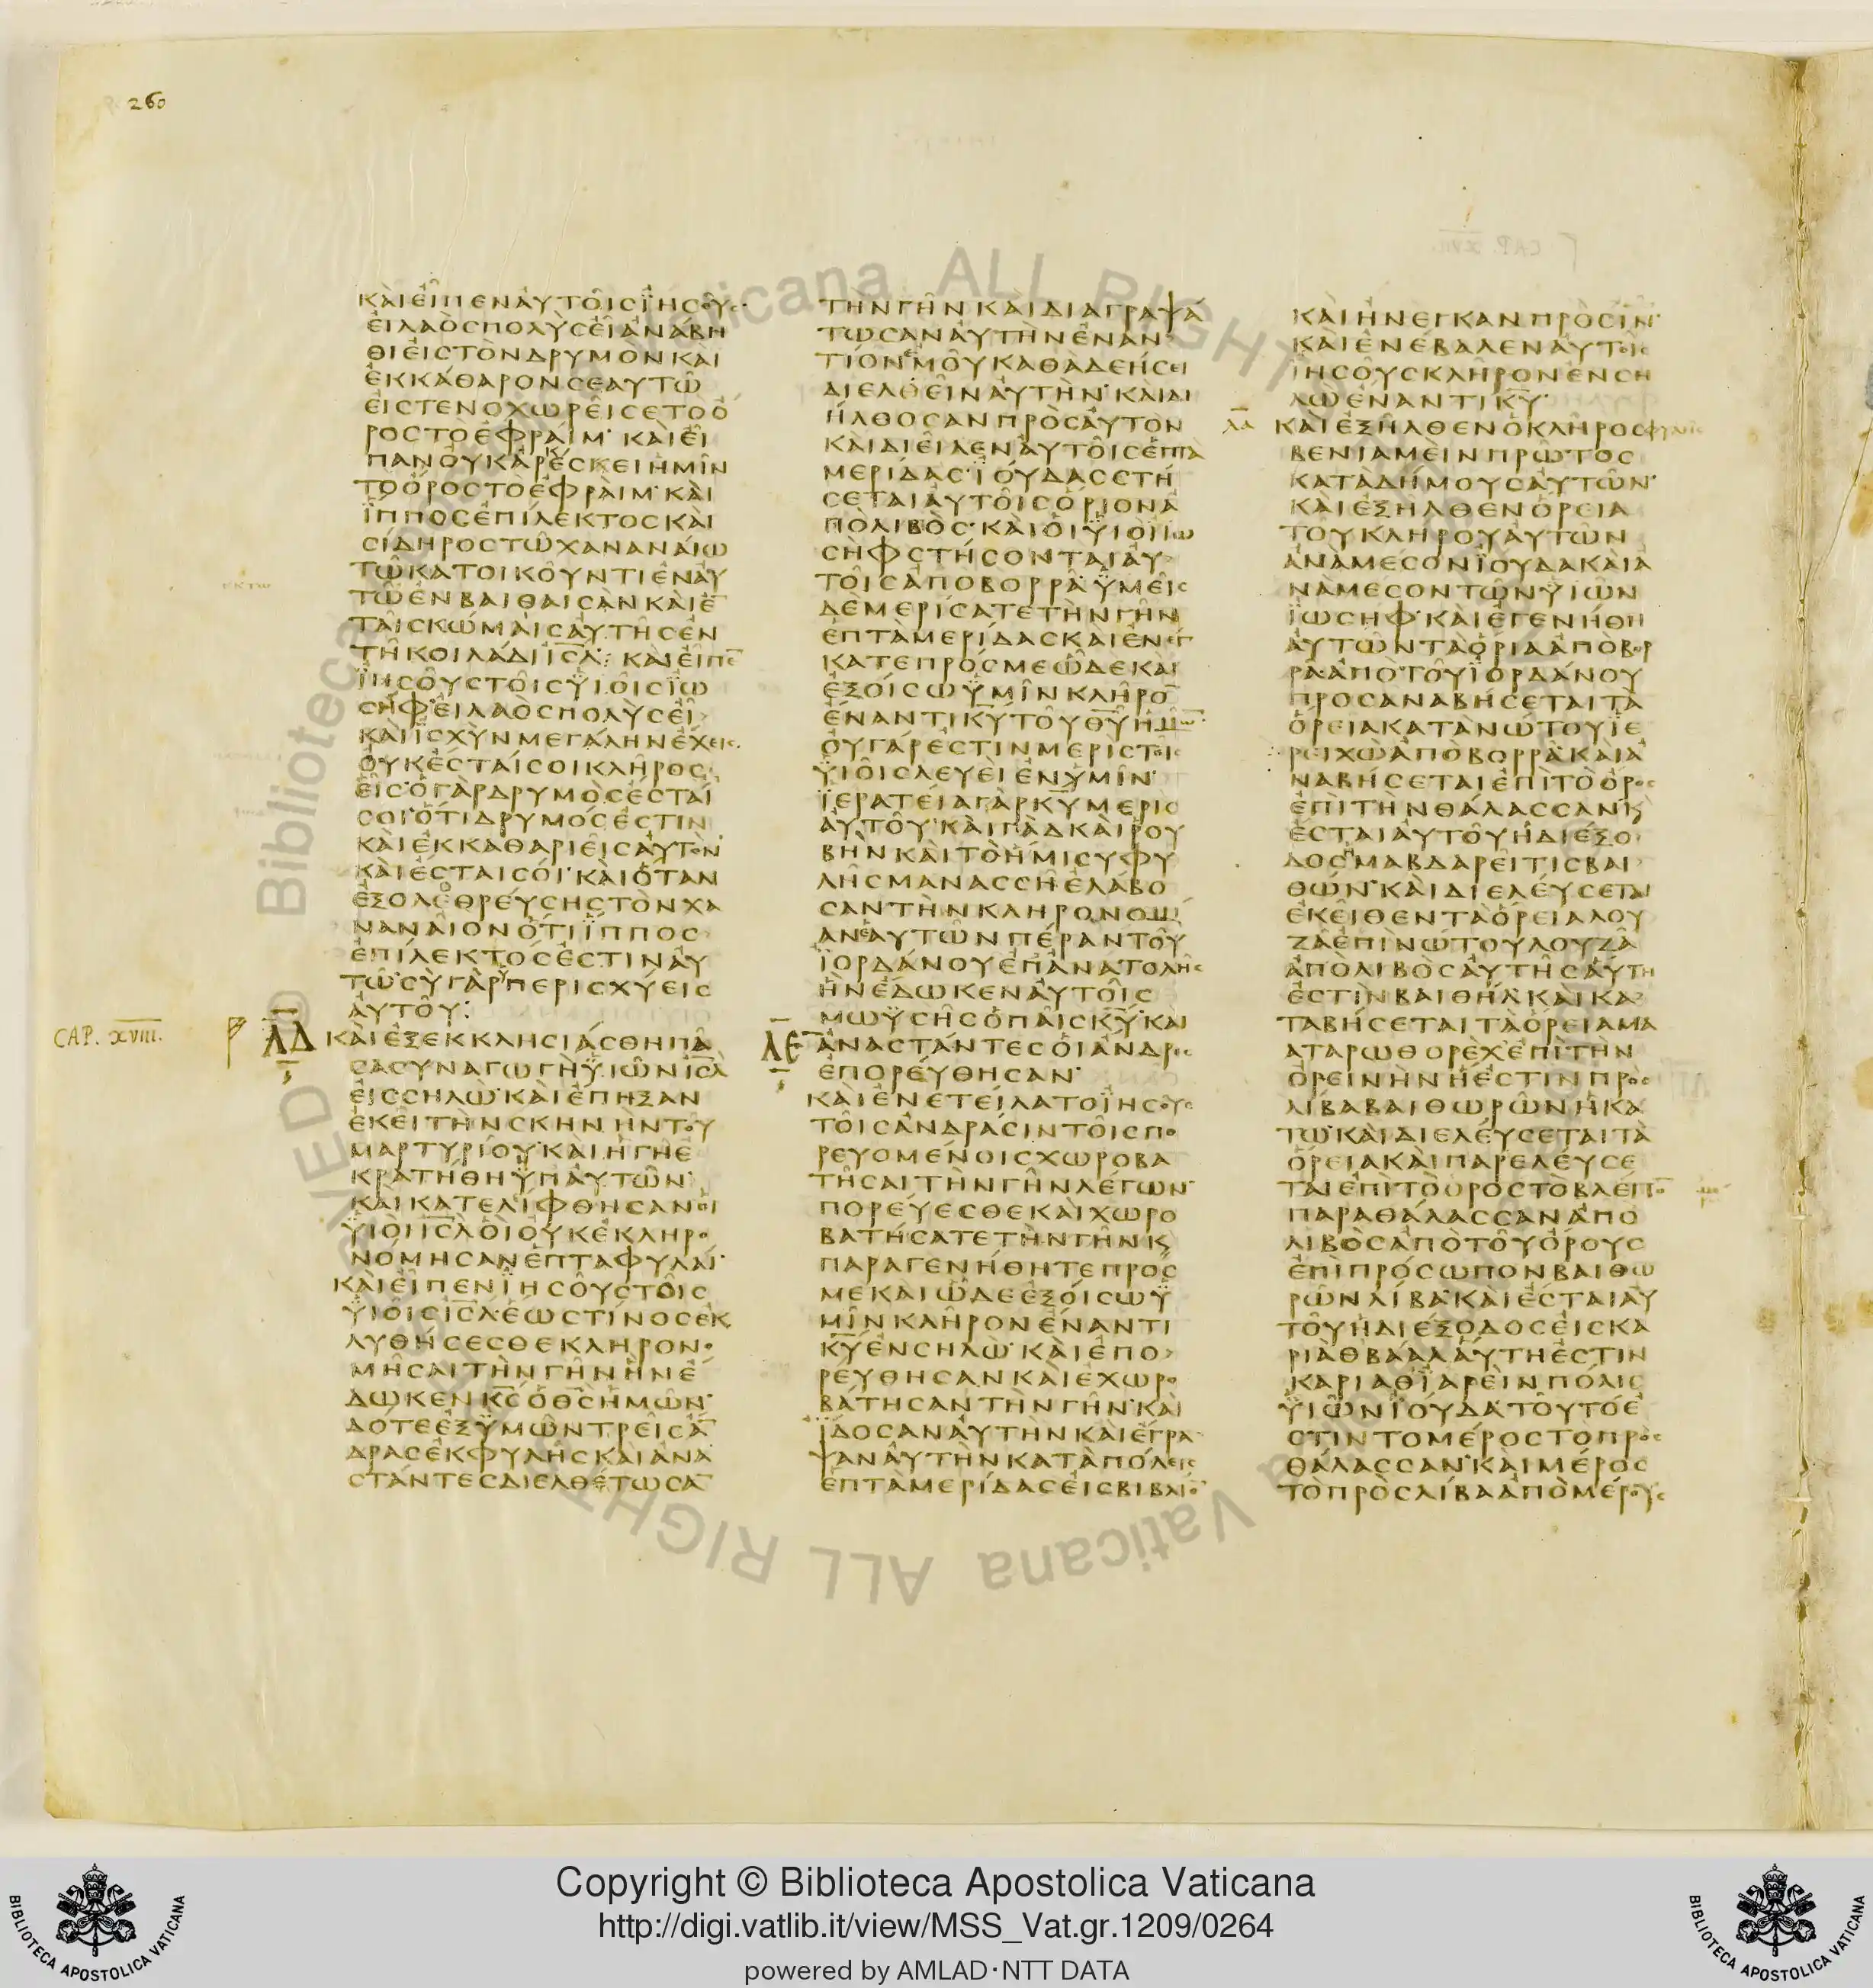 260
ΚΑΙΕΙΠΕΝΑΥΤΟΙΣΙΗΣΟΥΣ
ΕΙΛΑΟΣΠΟΛΥΣΕΙΑΝΑΒΗ
ΘΙΕΙΣΤΟΝΔΡΥΜΟΝΚΑΙ
ΕΚΚΑΘΑΡΟΝΣΕΑΥΤΩ
ΕΙΣΤΕΝΟΧΩΡΕΙΣΕΤΟΟ
ΡΟΣΤΟΕΦΡΑΙΜ· ΚΑΙΕΙ
ΠΑΝΟΥΚΑΡΕΣΚΕΙΗΜΙΝ
ΤΟΟΡΟΣΤΟΕΦΡΑΙΜ· ΚΑΙ
ΙΠΠΟΣΕΠΙΛΕΚΤΟΣΚΑΙ
ΣΙΔΗΡΟΣΤΩΧΑΝΑΝΑΙΩ
ΤΩΚΑΤΟΙΚΟΥΝΤΙΕΝΑΥ
ΤΩΕΝΒΑΙΘΑΙΣΑΝΚΑΙΕ̅
ΤΑΙΣΚΩΜΑΙΣΑΥΤΗΣΕΝ
ΤΗΚΟΙΛΑΔΙΙΣ̅Λ̅: ΚΑΙΕΙΠΕ̅
ΙΗΣΟΥΣΤΟΙΣΥΙΟΙΣΙΩ
ΣΗΦ·ΕΙΛΑΟΣΠΟΛΥΣΕΙ
ΚΑΙΙΣΧΥΝΜΕΓΑΛΗΝΕΧΕΙΣ
ΟΥΚΕΣΤΑΙΣΟΙΚΛΗΡΟΣ
ΕΙΣ·ΟΓΑΡΔΡΥΜΟΣΕΣΤΑΙ
ΣΟΙ·ΟΤΙΔΡΥΜΟΣΕΣΤΙΝ
ΚΑΙΕΚΚΑΘΑΡΙΕΙΣΑΥΤΟΝ·
ΚΑΙΕΣΤΑΙΣΟΙ· ΚΑΙΟΤΑΝ
ΕΞΟΛΕΘΡΕΥΣΗΣΤΟΝΧΑ
ΝΑΝΑΙΟΝΟΤΙΙΠΠΟΣ
ΕΠΙΛΕΚΤΟΣΕΣΤΙΝΑΥ
ΤΩ·ΣΥΓΑΡΥΠΕΡΙΣΧΥΕΙΣ
ΑΥΤΟΥ:
CAP. XVIII.
ΛΔ ΚΑΙΕΞΕΚΚΛΗΣΙΑΣΘΗΠΑ
ΣΑΣΥΝΑΓΩΓΗΥΙΩΝΙΣ̅Λ̅
ΕΙΣΣΗΛΩ·ΚΑΙΕΠΗΞΑΝ
ΕΚΕΙΤΗΝΣΚΗΝΗΝΤΟΥ
ΜΑΡΤΥΡΙΟΥ·ΚΑΙΗΓΗΕ
ΚΡΑΤΗΘΗΥΠΑΥΤΩΝ·
ΚΑΙΚΑΤΕΛΙΦΘΗΣΑΝΟΙ
ΥΙΟΙΙΣ̅Λ̅ΟΙΟΥΚΕΚΛΗΡΟ
ΝΟΜΗΣΑΝΕΠΤΑΦΥΛΑΙ·
ΚΑΙΕΙΠΕΝΙΗΣΟΥΣΤΟΙΣ
ΥΙΟΙΣΙΣ̅Λ̅·ΕΩΣΤΙΝΟΣΕΚ
ΛΥΘΗΣΕΣΘΕΚΛΗΡΟΝΟ
ΜΗΣΑΙΤΗΝΓΗΝΗΝΕ
ΔΩΚΕΝΚ̅Σ̅ΟΘ̅Σ̅ΗΜΩΝ·
ΔΟΤΕΕΞΥΜΩΝΤΡΕΙΣΑ̅
ΔΡΑΣΕΚΦΥΛΗΣΚΑΙΑΝΑ
ΣΤΑΝΤΕΣΔΙΕΛΘΕΤΩΣΑ̅
ΤΗΝΓΗΝΚΑΙΔΙΑΓΡΑΨΑ
ΤΩΣΑΝΑΥΤΗΝΕΝΑΝ
ΤΙΟΝΕΜΟΥΚΑΘΑΔΕΗΣΕΙ
ΔΙΕΛΘΕΙΝΑΥΤΗΝ·ΚΑΙΔΙ
ΗΛΘΟΣΑΝΠΡΟΣΑΥΤΟΝ
ΚΑΙΔΙΕΙΛΕΝΑΥΤΟΙΣΕΠΤΑ
ΜΕΡΙΔΑΣ·ΙΟΥΔΑΣΣΤΗ
ΣΕΤΑΙΑΥΤΟΙΣΟΡΙΟΝΑ
ΠΟΛΙΒΟΣ·ΚΑΙΟΙΥΙΟΙΙΩ
ΣΗΦΣΤΗΣΟΝΤΑΙΑΥ
ΤΟΙΣΑΠΟΒΟΡΡΑ·ΥΜΕΙΣ
ΔΕΜΕΡΙΣΑΤΕΤΗΝΓΗΝ
ΕΠΤΑΜΕΡΙΔΑΣΚΑΙΕΝΕΓ
ΚΑΤΕΠΡΟΣΜΕΩΔΕΚΑΙ
ΕΞΟΙΣΩΥΜΙΝΚΛΗΡΟ̅
ΕΝΑΝΤΙΚ̅Υ̅ΤΟΥΘ̅Υ̅ΗΜΩ̅
ΟΥΓΑΡΕΣΤΙΝΜΕΡΙΣΤΟΙΣ
ΥΙΟΙΣΛΕΥΕΙΕΝΥΜΙΝ·
ΙΕΡΑΤΕΙΑΓΑΡΚ̅Υ̅ΜΕΡΙΣ
ΑΥΤΟΥ·ΚΑΙΓΑΔΚΑΙΡΟΥ
ΒΗΝΚΑΙΤΟΗΜΙΣΥΦΥ
ΛΗΣΜΑΝΑΣΣΗΕΛΑΒΟ
ΣΑΝΤΗΝΚΛΗΡΟΝΟΜΙ
ΑΝΕΑΥΤΩΝΠΕΡΑΝΤΟΥ
ΙΟΡΔΑΝΟΥΕΠΑΝΑΤΟΛΗΣ
ΗΝΕΔΩΚΕΝΑΥΤΟΙΣ
ΜΩΥΣΗΣΟΠΑΙΣΚ̅Υ̅·ΚΑΙ
ΛΕ ΑΝΑΣΤΑΝΤΕΣΟΙΑΝΔΡΕΣ
ΕΠΟΡΕΥΘΗΣΑΝ·
ΚΑΙΕΝΕΤΕΙΛΑΤΟΙΗΣΟΥΣ
ΤΟΙΣΑΝΔΡΑΣΙΝΤΟΙΣΠΟ
ΡΕΥΟΜΕΝΟΙΣΧΩΡΟΒΑ
ΤΗΣΑΙΤΗΝΓΗΝΛΕΓΩΝ·
ΠΟΡΕΥΕΣΘΕΚΑΙΧΩΡΟ
ΒΑΤΗΣΑΤΕΤΗΝΓΗΝΚϚ
ΠΑΡΑΓΕΝΗΘΗΤΕΠΡΟΣ
ΜΕΚΑΙΩΔΕΕΞΟΙΣΩΥ
ΜΙΝΚΛΗΡΟΝΕΝΑΝΤΙ
Κ̅Υ̅ΕΝΣΗΛΩ·ΚΑΙΕΠΟ
ΡΕΥΘΗΣΑΝΚΑΙΕΧΩΡΟ
ΒΑΤΗΣΑΝΤΗΝΓΗΝ·ΚΑΙ
ΙΔΟΣΑΝΑΥΤΗΝΚΑΙΕΓΡΑ
ΨΑΝΑΥΤΗΝΚΑΤΑΠΟΛΕΙΣ
ΕΠΤΑΜΕΡΙΔΑΣΕΙΣΒΙΒΛΙΟ̅
ΚΑΙΗΝΕΓΚΑΝΠΡΟΣΙ̅Ν̅·
ΚΑΙΕΝΕΒΑΛΕΝΑΥΤΟΙΣ
ΙΗΣΟΥΣΚΛΗΡΟΝΕΝΣΗ
ΛΩΕΝΑΝΤΙΚ̅Υ̅·
ΚΑΙΕΞΗΛΘΕΝΟΚΛΗΡΟΣΦΥΛΗΣ
ΒΕΝΙΑΜΕΙΝΠΡΩΤΟΣ
ΚΑΤΑΔΗΜΟΥΣΑΥΤΩΝ·
ΚΑΙΕΞΗΛΘΕΝΟΡΕΙΑ
ΤΟΥΚΛΗΡΟΥΑΥΤΩΝ
ΑΝΑΜΕΣΟΝΙΟΥΔΑΚΑΙΑ
ΝΑΜΕΣΟΝΤΩΝΥΙΩΝ
ΙΩΣΗΦ·ΚΑΙΕΓΕΝΗΘΗ
ΑΥΤΩΝΤΑΟΡΙΑΑΠΟΒΟΡ
ΡΑ·ΑΠΟΤΟΥΙΟΡΔΑΝΟΥ
ΠΡΟΣΑΝΑΒΗΣΕΤΑΙΤΑ
ΟΡΕΙΑΚΑΤΑΝΩΤΟΥΙΕ
ΡΕΙΧΩΑΠΟΒΟΡΡΑ·ΚΑΙΑ
ΝΑΒΗΣΕΤΑΙΕΠΙΤΟΟΡΟΣ
ΕΠΙΤΗΝΘΑΛΑΣΣΑΝ·ΚϚ
ΕΣΤΑΙΑΥΤΟΥΗΔΙΕΞΟ
ΔΟΣΗΜΑΒΔΑΡΕΙΤΙΣΒΑΙ
ΘΩΝ·ΚΑΙΔΙΕΛΕΥΣΕΤΑΙ
ΕΚΕΙΘΕΝΤΑΟΡΕΙΑΛΟΥ
ΖΑΕΠΙΝΩΤΟΥΛΟΥΖΑ
ΑΠΟΛΙΒΟΣΑΥΤΗΣΑΥΤΗ
ΕΣΤΙΝΒΑΙΘΗΛ·ΚΑΙΚΑ
ΤΑΒΗΣΕΤΑΙΤΑΟΡΕΙΑΜΑ
ΑΤΑΡΩΘΟΡΕΧ·ΕΠΙΤΗΝ
ΟΡΕΙΝΗΝΗΕΣΤΙΝΠΡΟΣ
ΛΙΒΑΒΑΙΘΩΡΩΝΗΚΑ
ΤΩ·ΚΑΙΔΙΕΛΕΥΣΕΤΑΙΤΑ
ΟΡΕΙΑΚΑΙΠΑΡΕΛΕΥΣΕ
ΤΑΙΕΠΙΤΟΟΡΟΣΤΟΒΛΕΠΟ̅
ΠΑΡΑΘΑΛΑΣΣΑΝΑΠΟ
ΛΙΒΟΣΑΠΟΤΟΥΟΡΟΥΣ
ΕΠΙΠΡΟΣΩΠΟΝΒΑΙΘΩ
ΡΩΝΛΙΒΑ·ΚΑΙΕΣΤΑΙΑΥ
ΤΟΥΗΔΙΕΞΟΔΟΣΕΙΣΚΑ
ΡΙΑΘΒΑΑΛΑΥΤΗΕΣΤΙΝ
ΚΑΡΙΑΘΙΑΡΕΙΝΠΟΛΙΣ
ΥΙΩΝΙΟΥΔΑ·ΤΟΥΤΟΕ
ΣΤΙΝΤΟΜΕΡΟΣΤΟΠΡΟΣ
ΘΑΛΑΣΣΑΝ·ΚΑΙΜΕΡΟΣ
ΤΟΠΡΟΣΛΙΒΑΑΠΟΜΕΡΟΥΣ
Copyright © Biblioteca Apostolica Vaticana
http://digi.vatlib.it/view/MSS_Vat.gr.1209/0264
powered by AMLAD·NTT DATA
BIBLIOTECA APOSTOLICA VATICANA
BIBLIOTECA APOSTOLICA VATICANA